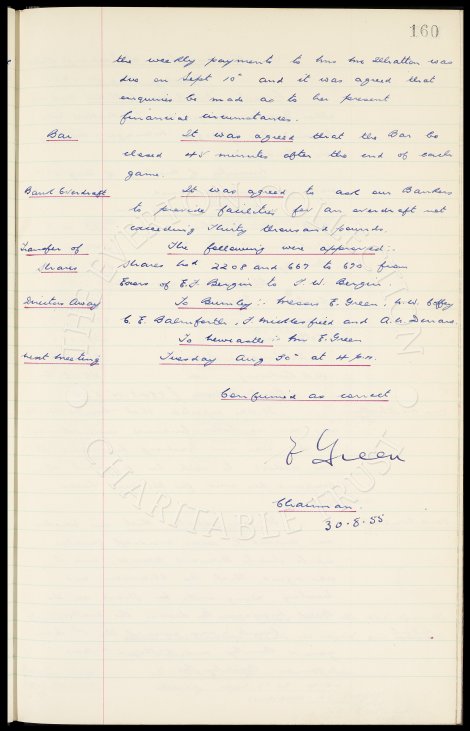 160
the weekly payments to Mrs McWhatton was
due on Sept 10th and it was agreed that
enquiries be made as to her present
financial circumstances.
Bar It was agreed that the Bar be
closed 45 minutes after the end of each
game.
Bank Overdraft It was agreed to ask our Bankers
to provide facilities for an overdraft not
exceeding Thirty thousand pounds.
Transfer of The following were approved:-
Shares Shares Nos 2208 and 667 to 670 from
Exors of E.J. Bergin to J.W. Bergin.
Directors Away To Burnley:- Messrs E. Green, N.W. Coffey
C. E. Balmforth, J. Micklesfield and A.H. Denaro.
To Newcastle:- Mr E. Green
Next Meeting Tuesday Aug 30th at 4 p.m.
Confirmed as correct
E Green
Chairman.
30.8.55
THE EVERTON COLLECTION
CHARITABLE TRUST